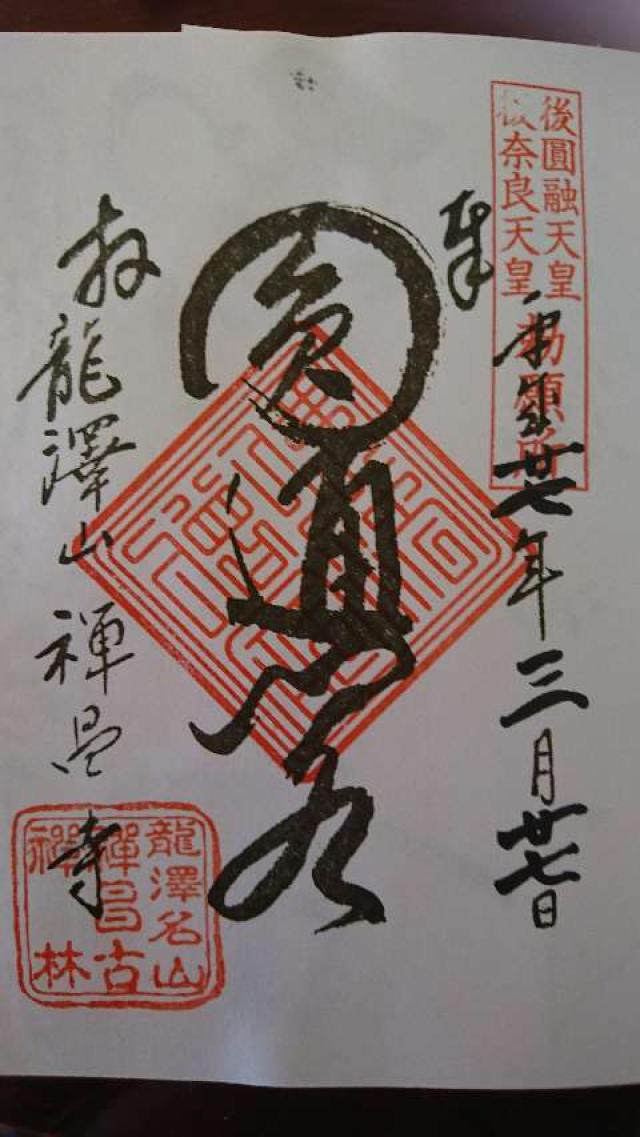 後圓融天皇
後奈良天皇
勅願所
奉
平成廿七年三月廿七日
圓通閣
於龍澤山禪昌寺
龍澤名山
禪昌古
禪林